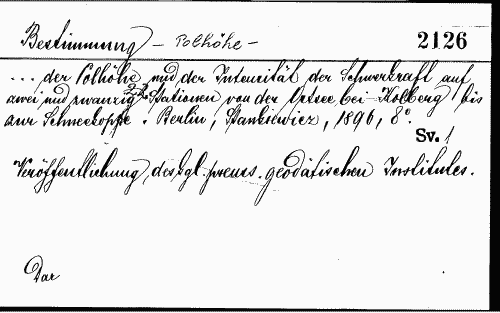 Bestimmung - Polhöhe - 2126
... der Polhöhe und der Intensität der Schwerkraft auf
zwei und zwanzig 22 Stationen von der Ostsee bei Kolberg bis
zur Schneekoppe. Berlin, Stankiewicz, 1896, 8°.
Sv. 1
Veröffentlichung des kgl. preuss. geodätischen Institutes.
Dar